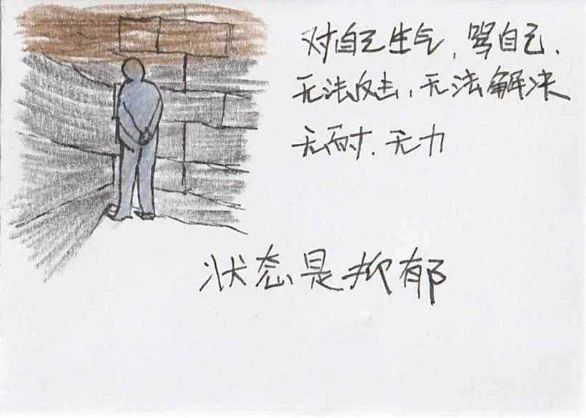 对自己生气，骂自己.
无法反击，无法解决
无耐.无力
状态是抑郁